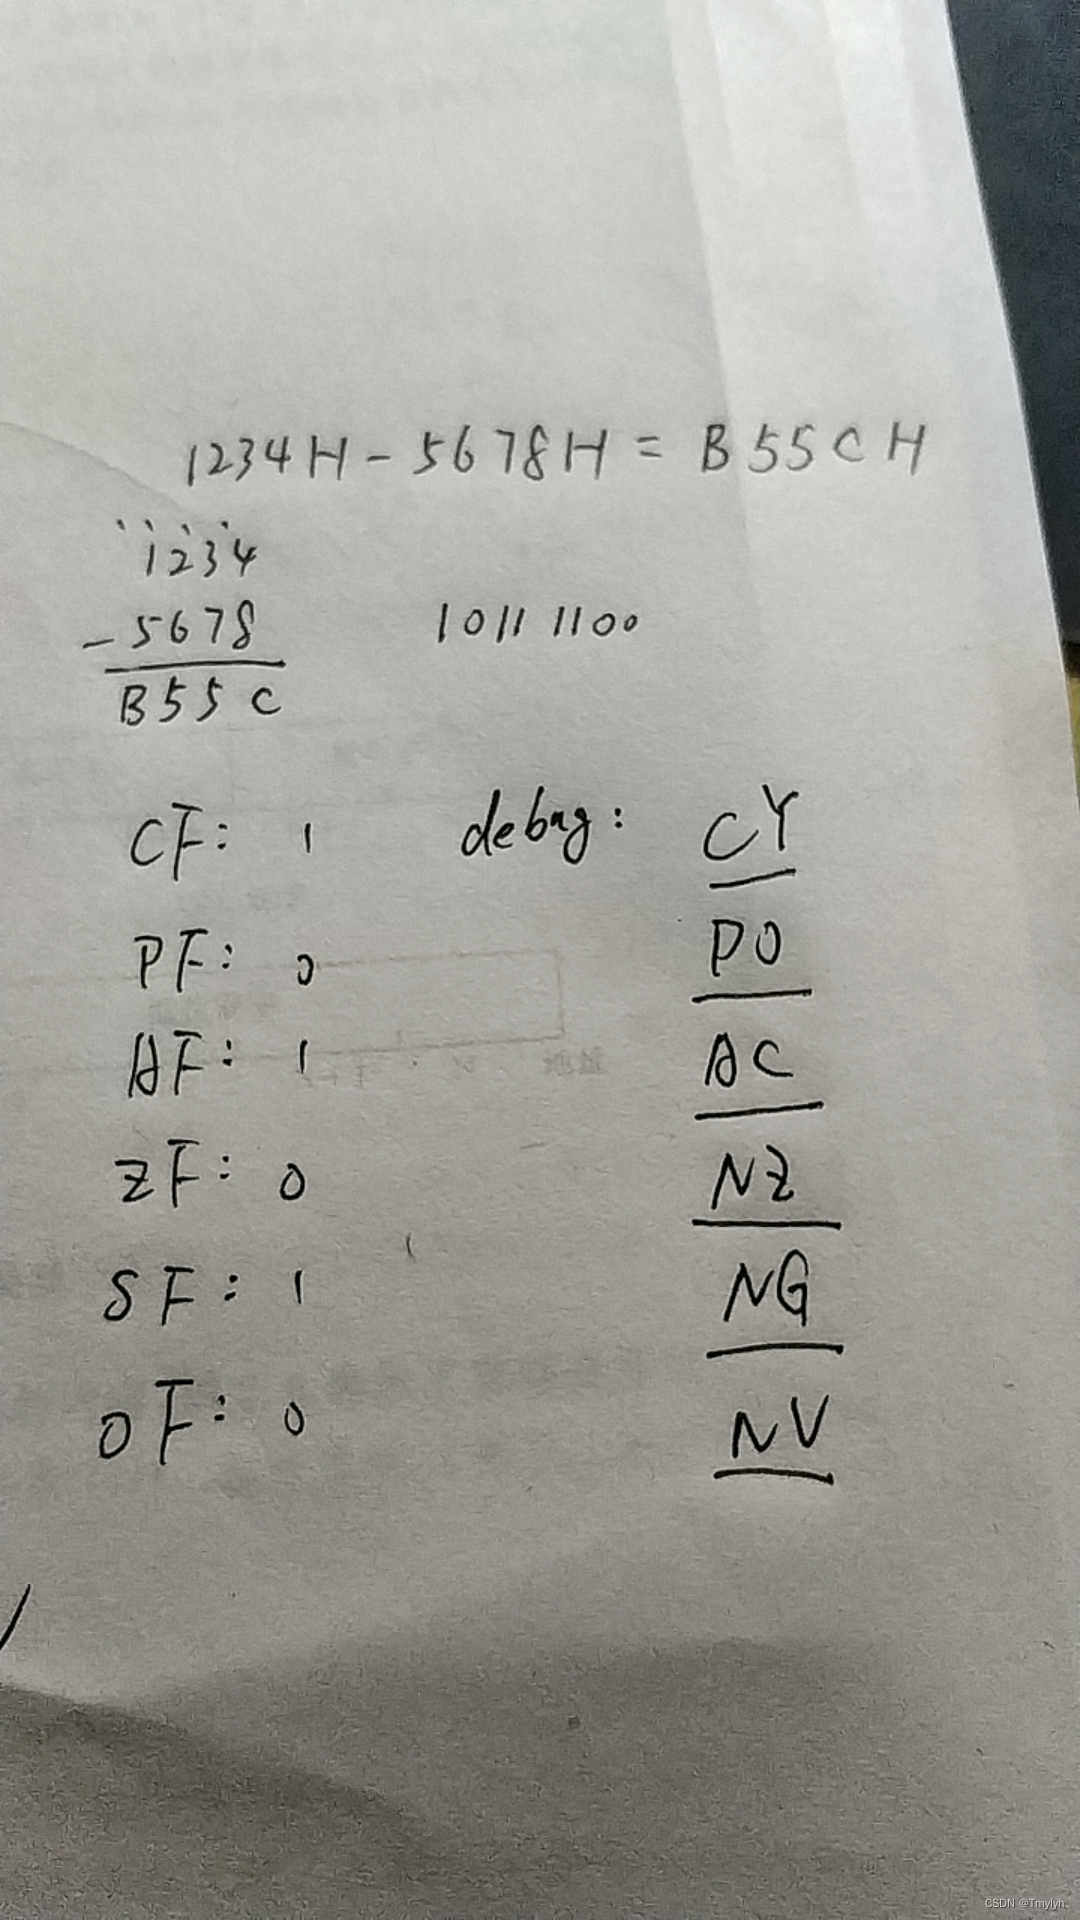 1234H - 5678H = B55CH
1234
- 5678
1011 1100
B55C
CF: 1 debug: CY
PF: 0 PO
AF: 1 AC
ZF: 0 NZ
SF: 1 NG
OF: 0 NV
CSDN @Tmylyh